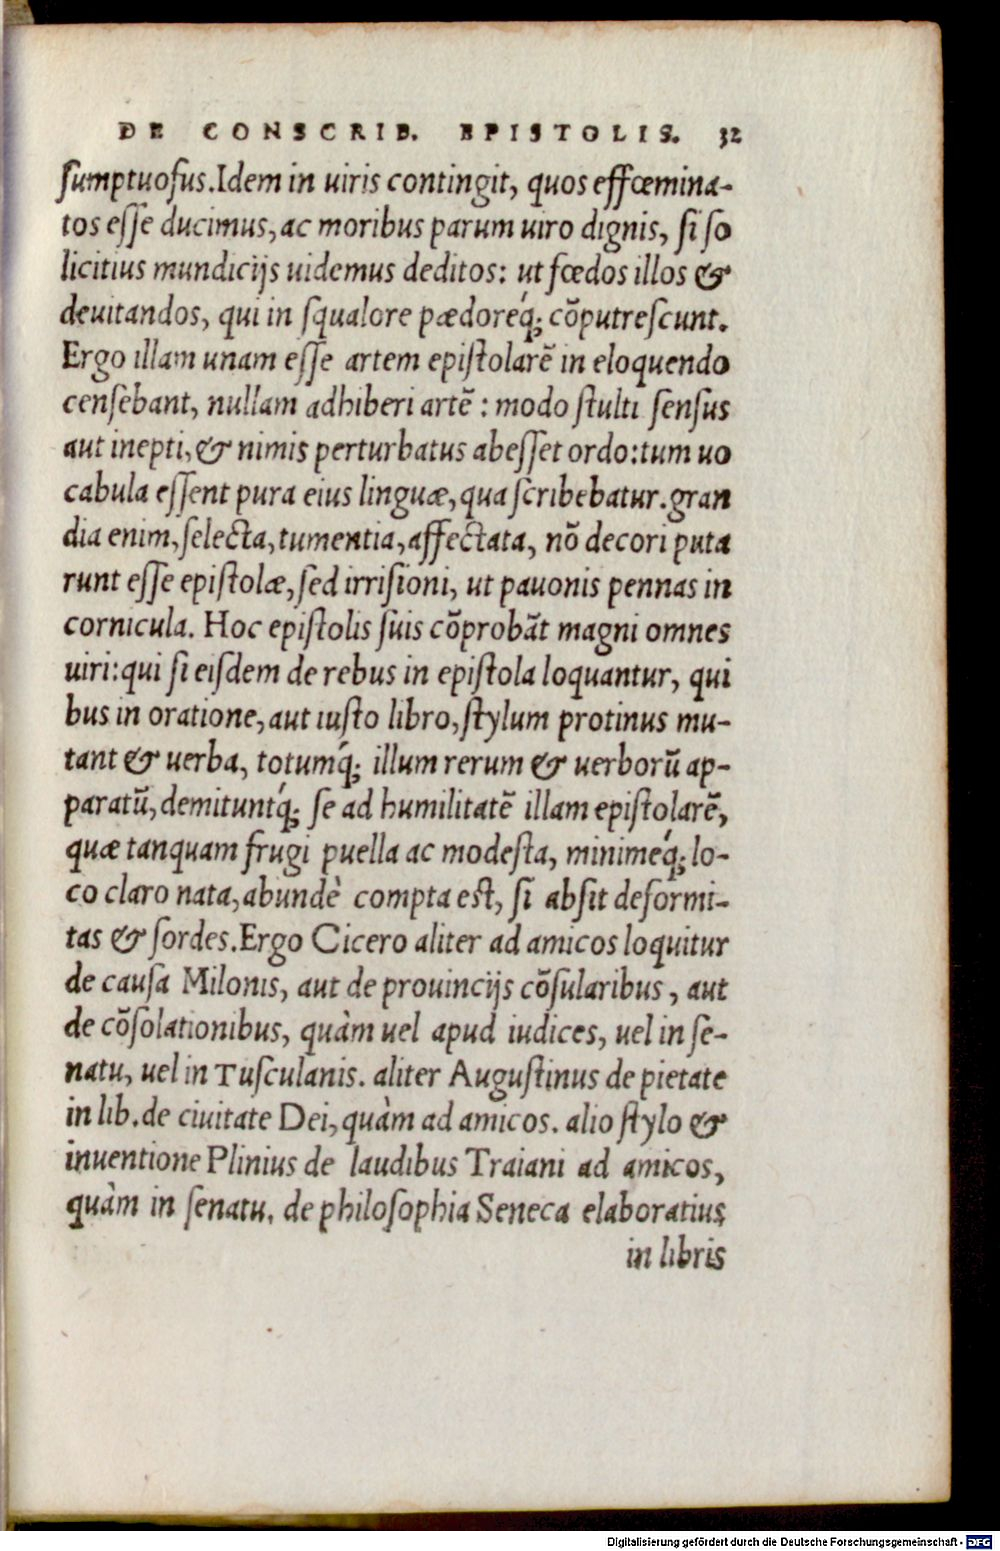 DE CONSCRIB. EPISTOLIS. 32
sumptuosus. Idem in uiris contingit, quos effœmina-
tos esse ducimus, ac moribus parum uiro dignis, si so
licitius mundicijs uidemus deditos: ut fœdos illos &
deuitandos, qui in squalore pædoreq́; cōputrescunt.
Ergo illam unam esse artem epistolarē in eloquendo
censebant, nullam adhiberi artē : modo stulti sensus
aut inepti, & nimis perturbatus abesset ordo: tum uo
cabula essent pura eius linguæ, qua scribebatur. gran
dia enim, selecta, tumentia, affectata, nō decori puta
runt esse epistolæ, sed irrisioni, ut pauonis pennas in
cornicula. Hoc epistolis suis cōprobāt magni omnes
uiri: qui si eisdem de rebus in epistola loquantur, qui
bus in oratione, aut iusto libro, stylum protinus mu-
tant & uerba, totumq́; illum rerum & uerborū ap-
paratū, demituntq́; se ad humilitatē illam epistolarē,
quæ tanquam frugi puella ac modesta, minimeq́; lo-
co claro nata, abundè compta est, si absit deformi-
tas & sordes. Ergo Cicero aliter ad amicos loquitur
de causa Milonis, aut de prouincijs cōsularibus, aut
de cōsolationibus, quàm uel apud iudices, uel in se-
natu, uel in Tusculanis. aliter Augustinus de pietate
in lib. de ciuitate Dei, quàm ad amicos. alio stylo &
inuentione Plinius de laudibus Traiani ad amicos,
quàm in senatu. de philosophia Seneca elaboratius
in libris
Digitalisierung gefördert durch die Deutsche Forschungsgemeinschaft - DFG